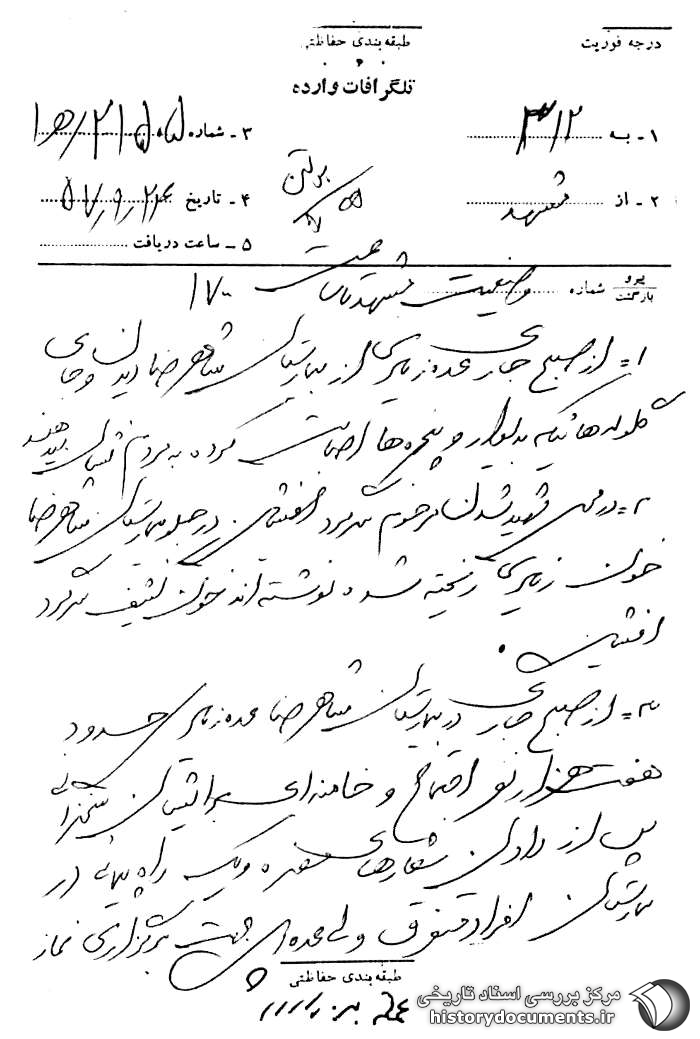 درجه فوریت
طبقه‌بندی حفاظتی
تلگرافات وارده
۱ـ به ۳۱۲
۳ـ شماره
۲ـ از مشهد
بولتن
۴ـ تاریخ ۵۷/۹/۲۴
۵ ـ ساعت دریافت
پیرو
بازگشت
شماره
وضعیت مشهد تا ساعت ۱۷۰۰
۱= از صبح جاری عده زیادی از بیمارستان شاهرضا دیدن و جای
گلوله‌هائیکه بدیوار و پنجره‌ها اصابت کرده به مردم نشان میدهند
۲= در محل شهید شدن مرحوم سرگرد افشین در جلو بیمارستان شاهرضا
خون زیادی ریخته شده نوشته‌اند خون کثیف سرگرد
افشین.
۳= از صبح جاری در بیمارستان شاهرضا عده زیادی حدود
هفت هزار نفر اجتماع و خامنه‌ای برایشان سخنرانی
پس از دادن شعارهای مضره و یک راه‌پیمائی در
بیمارستان افراد متفرق ولی عده‌ای جهت برگزاری نماز
طبقه‌بندی حفاظتی
مرکز بررسی اسناد تاریخی
historydocuments.ir